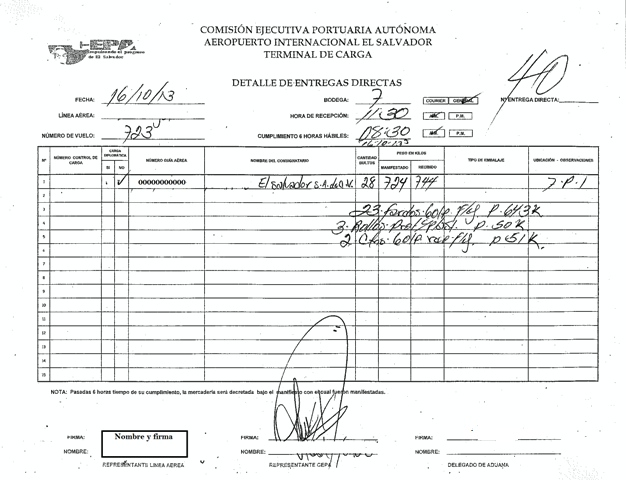 COMISIÓN EJECUTIVA PORTUARIA AUTÓNOMA
AEROPUERTO INTERNACIONAL EL SALVADOR
TERMINAL DE CARGA
CEPA
de El Salvador
DETALLE DE ENTREGAS DIRECTAS
40
FECHA: 16/10/13
BODEGA: 7
COURIER GENERAL
Nº ENTREGA DIRECTA:
LÍNEA AÉREA:
HORA DE RECEPCIÓN: 11:30
P.M.
NÚMERO DE VUELO: 723
CUMPLIMIENTO 6 HORAS HÁBILES: 08:30
P.M.
Nº
NÚMERO CONTROL DE CARGA
CARGA DIPLOMATICA
SI NO
NÚMERO GUÍA AÉREA
NOMBRE DEL CONSIGNATARIO
CANTIDAD BULTOS
PESO EN KILOS
MANIFESTADO RECIBIDO
TIPO DE EMBALAJE
UBICACIÓN - OBSERVACIONES
1 00000000000 El Salvador S.A. de C.V. 28 724 744 7-P-1
2
3 23 Fardos P. 643K
4 3 Rollos P. 50K
5 2 P. 51K.
6
7
8
9
10
11
12
13
14
15
NOTA: Pasadas 6 horas tiempo de su cumplimiento, la mercadería será decretada bajo el manifiesto con el cual fueron manifestadas.
FIRMA: Nombre y firma
FIRMA:
FIRMA:
NOMBRE:
NOMBRE:
NOMBRE:
REPRESENTANTE LINEA AEREA
REPRESENTANTE CEPA
DELEGADO DE ADUANA